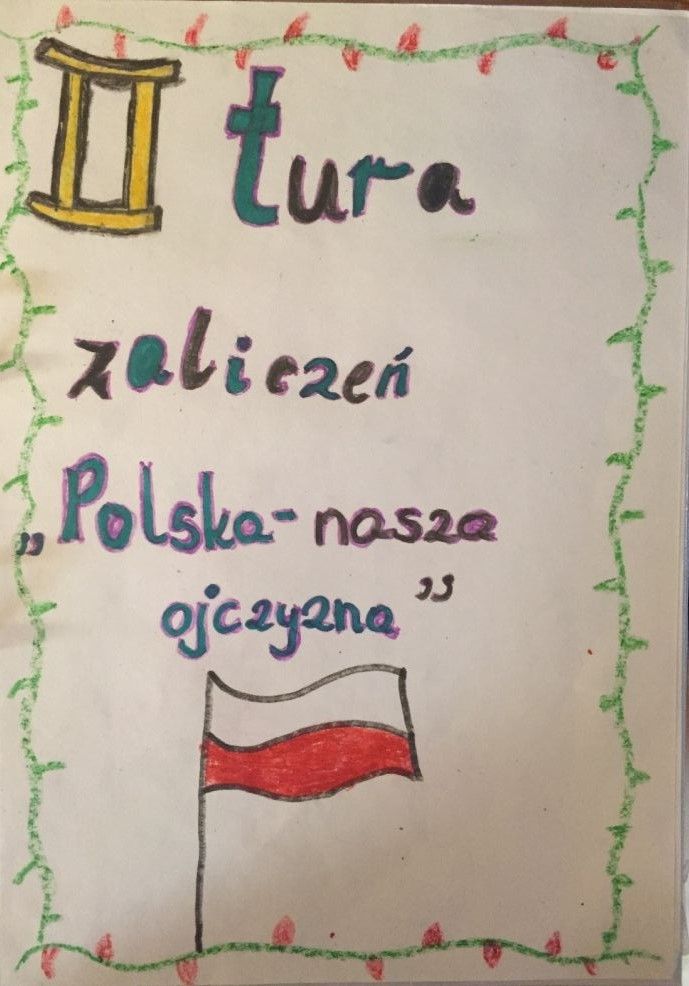 II tura
zaliczeń
„Polska-nasza
ojczyzna”